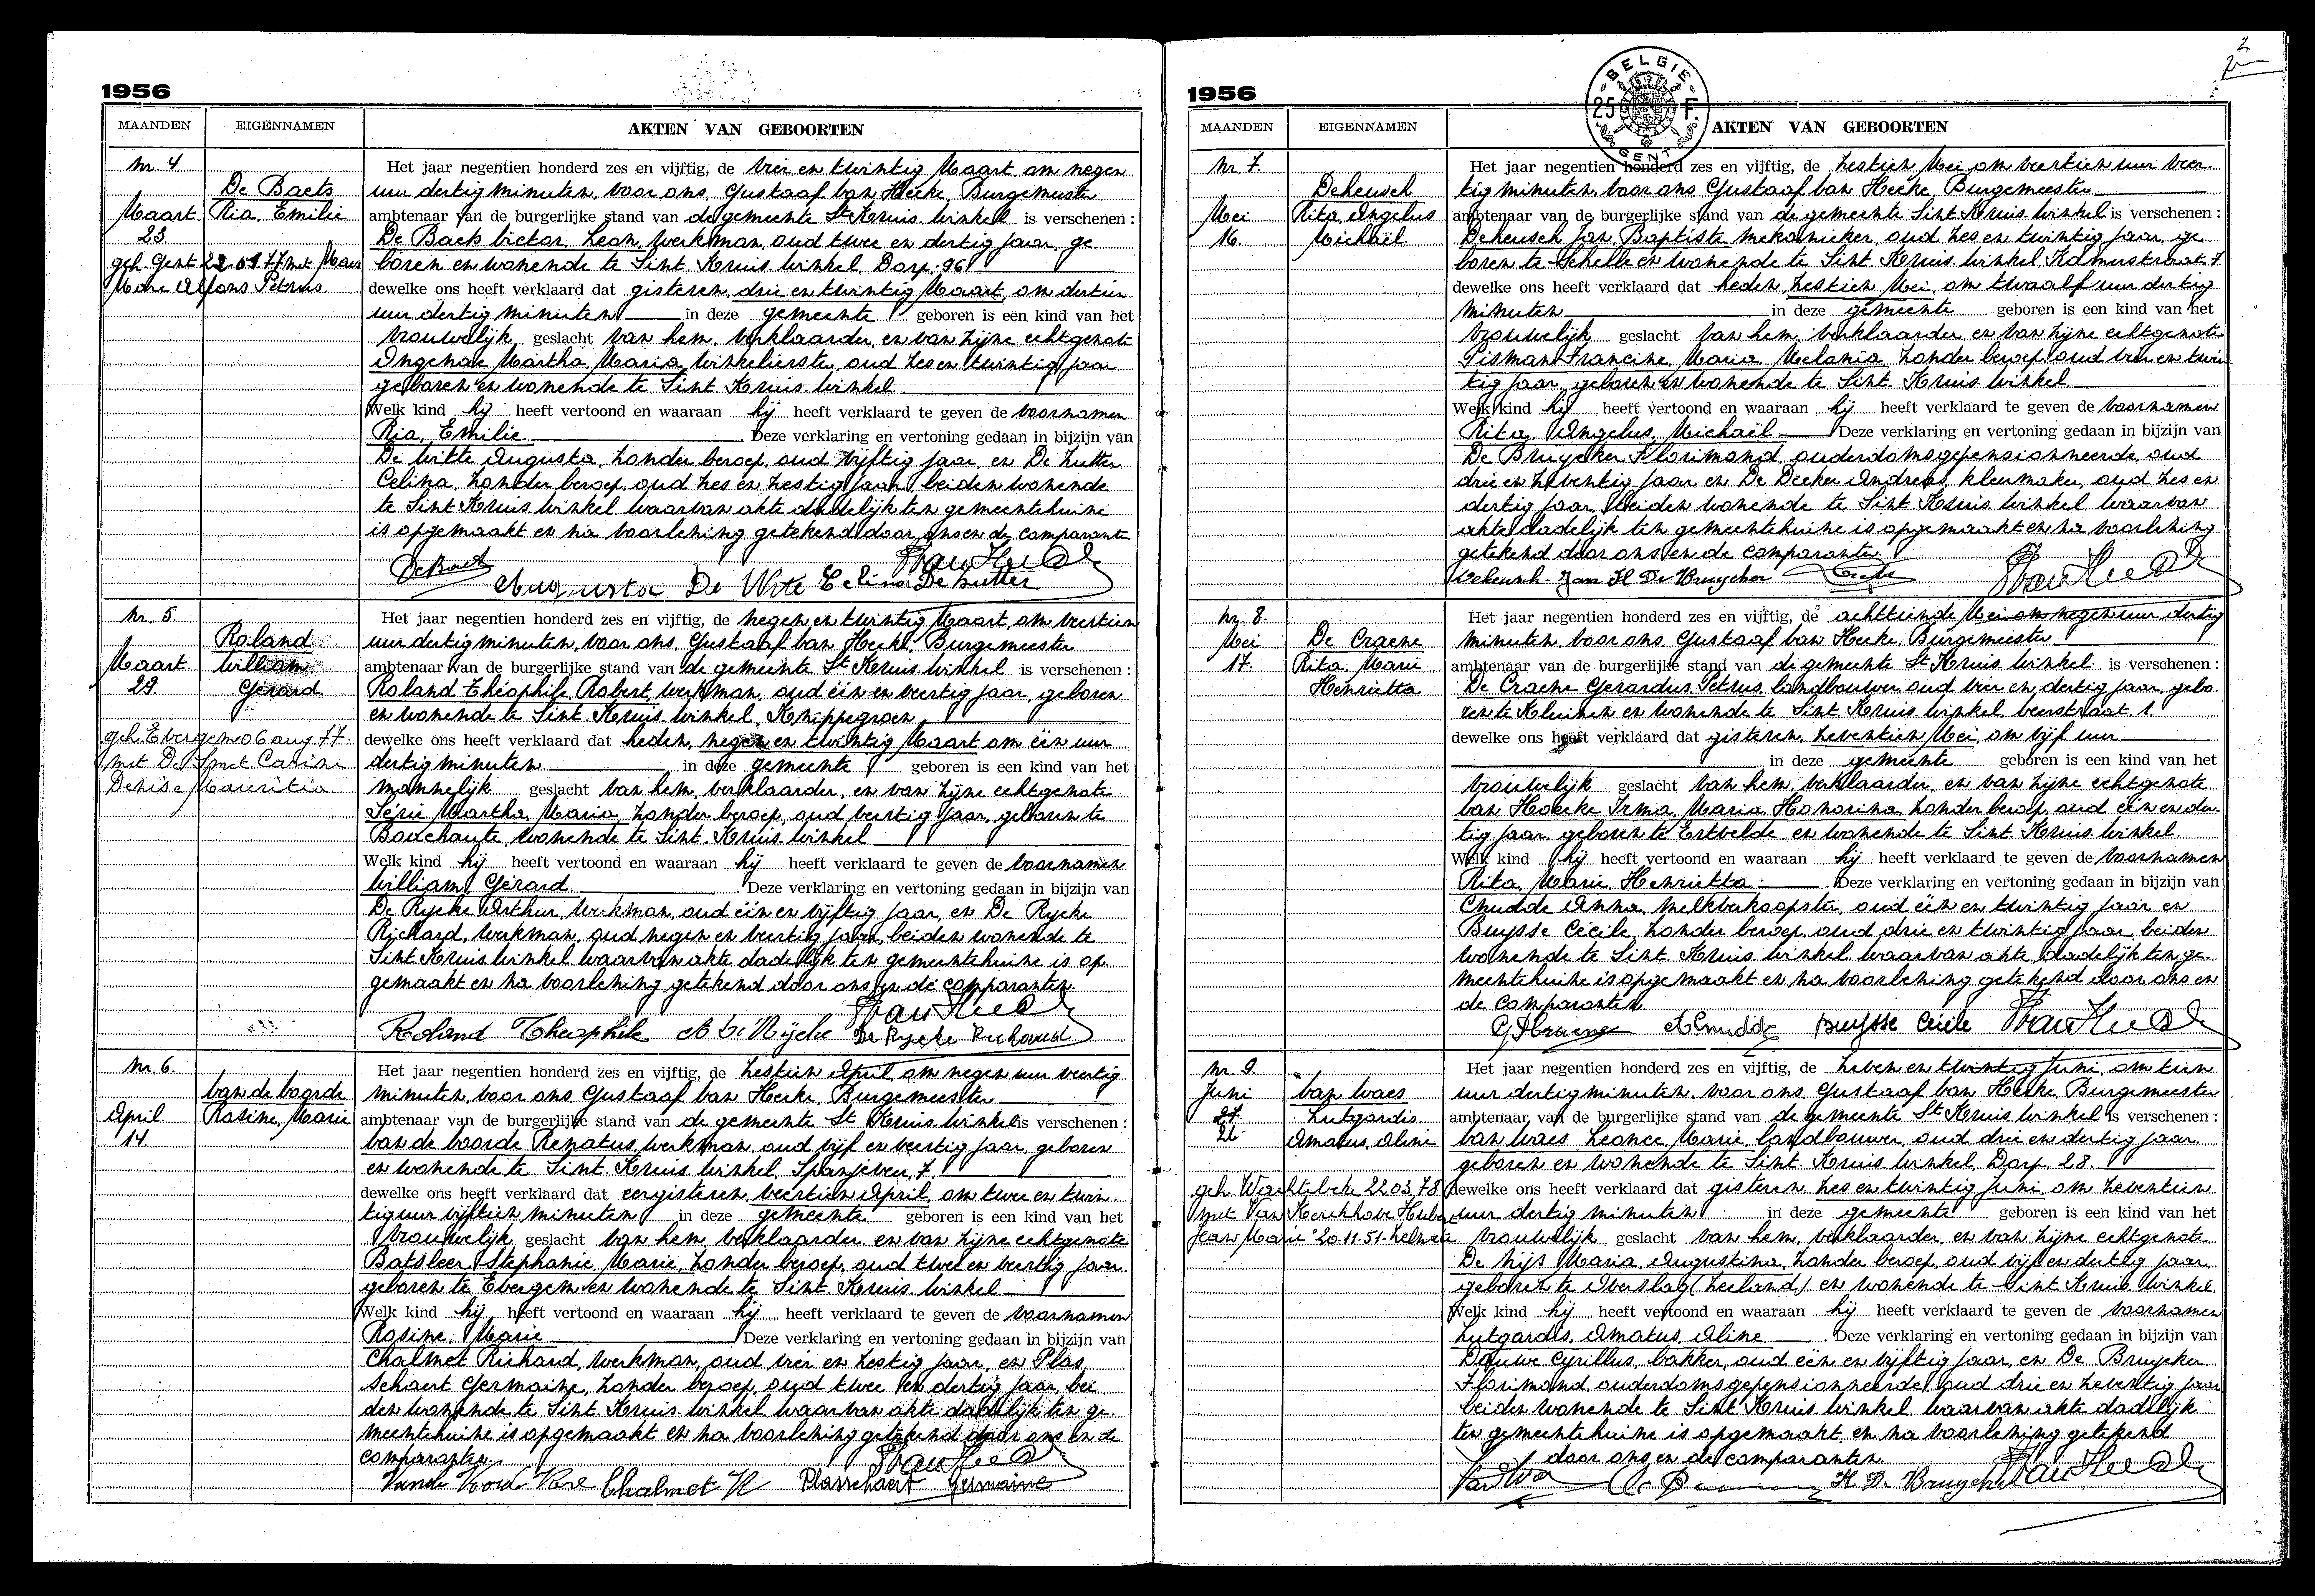 1956
MAANDEN EIGENNAMEN AKTEN VAN GEBOORTEN
Nr. 4
De Baets
Ria, Emilie
Maart
23.
geh. Gent 22 07 77 met Maes
Marc Alfons Petrus
Het jaar negentien honderd zes en vijftig, de vier en twintig Maart om negen
uur dertig minuten, voor ons, Gustaaf Van Hecke, Burgemeester
ambtenaar van de burgerlijke stand van de gemeente St Kruis Winkel is verschenen :
De Baets Victor, Leon, werkman, oud twee en dertig jaar, ge
boren en wonende te Sint Kruis Winkel, Dorp 96
dewelke ons heeft verklaard dat gisteren, drie en twintig Maart, om dertien
uur dertig minuten in deze gemeente geboren is een kind van het
vrouwelijk geslacht van hem, verklaarder, en van zijne echtgenote
Martha, Maria, winkelierster, oud zes en twintig jaar
geboren en wonende te Sint Kruis Winkel
Welk kind hij heeft vertoond en waaraan hij heeft verklaard te geven de voornamen
Ria, Emilie. Deze verklaring en vertoning gedaan in bijzijn van
De Witte Augusta, zonder beroep, oud vijftig jaar, en De Zutter
Celina, zonder beroep, oud zes en zestig jaar, beiden wonende
te Sint Kruis Winkel waarvan akte dadelijk ten gemeentehuize
is opgemaakt en na voorlezing getekend door ons en de comparanten
De Baets
Augusta De Witte Celina De Zutter
Nr. 5.
Roland
William
Gérard
Maart
29.
geh Evergem 06 aug 77
met De Smet Carine
Denise Mauritia
Het jaar negentien honderd zes en vijftig, de negen en twintig Maart, om veertien
uur dertig minuten, voor ons, Gustaaf Van Hecke, Burgemeester
ambtenaar van de burgerlijke stand van de gemeente St Kruis Winkel is verschenen :
Roland Théophile, Robert, werkman, oud één en veertig jaar, geboren
en wonende te Sint Kruis Winkel, Knippegroen
dewelke ons heeft verklaard dat heden, negen en twintig Maart om één uur
dertig minuten in deze gemeente geboren is een kind van het
mannelijk geslacht van hem, verklaarder, en van zijne echtgenote
Martha, Maria, zonder beroep, oud veertig jaar, geboren te
Bouchaute, wonende te Sint Kruis Winkel
Welk kind hij heeft vertoond en waaraan hij heeft verklaard te geven de voornamen
William, Gérard. Deze verklaring en vertoning gedaan in bijzijn van
De Rycke Arthur, werkman, oud één en vijftig jaar, en De Rycke
Richard, werkman, oud negen en veertig jaar, beiden wonende te
Sint Kruis Winkel waarvan akte dadelijk ten gemeentehuize is op
gemaakt en na voorlezing getekend door ons en de comparanten
Roland Théophile De Rycke De Rycke Richard
Nr. 6.
Van de Voorde
Rosine, Marie
April
14.
Het jaar negentien honderd zes en vijftig, de zestien April om negen uur veertig
minuten, voor ons Gustaaf Van Hecke, Burgemeester
ambtenaar van de burgerlijke stand van de gemeente St Kruis Winkel is verschenen :
Van de Voorde Renatus, werkman, oud vijf en veertig jaar, geboren
en wonende te Sint Kruis Winkel, Spanjeveer 7
dewelke ons heeft verklaard dat eergisteren, veertien April, om twee en twin
tig uur vijftien minuten in deze gemeente geboren is een kind van het
vrouwelijk geslacht van hem, verklaarder, en van zijne echtgenote
Batsleer Stephanie, Marie, zonder beroep, oud twee en veertig jaar
geboren te Evergem en wonende te Sint Kruis Winkel
Welk kind hij heeft vertoond en waaraan hij heeft verklaard te geven de voornamen
Rosine, Marie Deze verklaring en vertoning gedaan in bijzijn van
Chalmet Richard, werkman, oud vier en zestig jaar, en Plas
schaert Germaine, zonder beroep, oud twee en dertig jaar, bei
den wonende te Sint Kruis Winkel waarvan akte dadelijk ten ge
meentehuize is opgemaakt en na voorlezing getekend door ons en de
comparanten.
Chalmet R Plasschaert Germaine
2
1956
BELGIE 25 F. GENT
MAANDEN EIGENNAMEN AKTEN VAN GEBOORTEN
Nr 7.
Deheusch
Rita, Angelus
Michaël.
Mei
16.
Het jaar negentien honderd zes en vijftig, de zestien Mei om veertien uur veer
tig minuten, voor ons Gustaaf Van Hecke, Burgemeester
ambtenaar van de burgerlijke stand van de gemeente Sint Kruis Winkel is verschenen :
Deheusch Jan, Baptiste mekanieker, oud zes en twintig jaar, ge
boren te Schelle en wonende te Sint Kruis Winkel, Kamerstraat 7
dewelke ons heeft verklaard dat heden, zestien Mei, om twaalf uur dertig
minuten in deze gemeente geboren is een kind van het
vrouwelijk geslacht van hem, verklaarder, en van zijne echtgenote
Sisman Francine, Maria, Melania, zonder beroep, oud vier en twin
tig jaar, geboren en wonende te Sint Kruis Winkel
Welk kind hij heeft vertoond en waaraan hij heeft verklaard te geven de voornamen
Rita, Angelus, Michaël Deze verklaring en vertoning gedaan in bijzijn van
De Bruycker Florimond, ouderdomsgepensionneerde, oud
drie en zeventig jaar en De Decker Andreas, kleermaker, oud zes en
dertig jaar, beiden wonende te Sint Kruis Winkel waarvan
akte dadelijk ten gemeentehuize is opgemaakt en na voorlezing
getekend door ons en de comparanten.
Deheusch Jan Fl De Bruycker
Nr. 8.
Mei
17.
De Craene
Rita, Marie
Henrietta
Het jaar negentien honderd zes en vijftig, de achttiende Mei om negen uur dertig
minuten voor ons Gustaaf Van Hecke, Burgemeester
ambtenaar van de burgerlijke stand van de gemeente St Kruis Winkel is verschenen :
De Craene Gerardus, Petrus, landbouwer, oud vier en dertig jaar, gebo
ren te Kluizen en wonende te Sint Kruis Winkel, Veerstraat 1.
dewelke ons heeft verklaard dat gisteren, zeventien Mei, om vijf uur
in deze gemeente geboren is een kind van het
vrouwelijk geslacht van hem, verklaarder, en van zijne echtgenote
Van Hoecke Irma, Maria, Honorina, zonder beroep, oud één en der
tig jaar, geboren te Ertvelde en wonende te Sint Kruis Winkel
Welk kind hij heeft vertoond en waaraan hij heeft verklaard te geven de voornamen
Rita, Marie, Henrietta. Deze verklaring en vertoning gedaan in bijzijn van
Cnudde Anna, melkverkoopster, oud één en twintig jaar en
Buysse Cécile, zonder beroep, oud drie en twintig jaar, beiden
wonende te Sint Kruis Winkel waarvan akte dadelijk ten ge
meentehuize is opgemaakt en na voorlezing getekend door ons en
de comparanten
A Cnudde Buysse Cécile
Nr. 9.
Juni
27
26
Van Waes
Lutgardis
Amatus, Aline
geh. Wachtebeke 22 03 78
met Van Kerckhove Hubert
Jean Marie °20.11.51 Zelzate
Het jaar negentien honderd zes en vijftig, de zeven en twintig Juni, om tien
uur dertig minuten voor ons Gustaaf Van Hecke Burgemeester
ambtenaar van de burgerlijke stand van de gemeente St Kruis Winkel is verschenen :
Van Waes Leonce, Marie, landbouwer, oud drie en dertig jaar
geboren en wonende te Sint Kruis Winkel, Dorp, 28.
dewelke ons heeft verklaard dat gisteren, zes en twintig Juni, om zeventien
uur dertig minuten in deze gemeente geboren is een kind van het
vrouwelijk geslacht van hem, verklaarder, en van zijne echtgenote
De Nijs Maria, Augustina, zonder beroep, oud vijf en dertig jaar
geboren te Overslag (Zeeland) en wonende te Sint Kruis Winkel.
Welk kind hij heeft vertoond en waaraan hij heeft verklaard te geven de voornamen
Lutgardis, Amatus, Aline Deze verklaring en vertoning gedaan in bijzijn van
Dauwe Cyrillus, bakker, oud één en vijftig jaar, en De Bruycker
Florimond, ouderdomsgepensionneerde, oud drie en zeventig jaar
beiden wonende te Sint Kruis Winkel waarvan akte dadelijk
ten gemeentehuize is opgemaakt en na voorlezing getekend
door ons en de comparanten
Fl De Bruycker